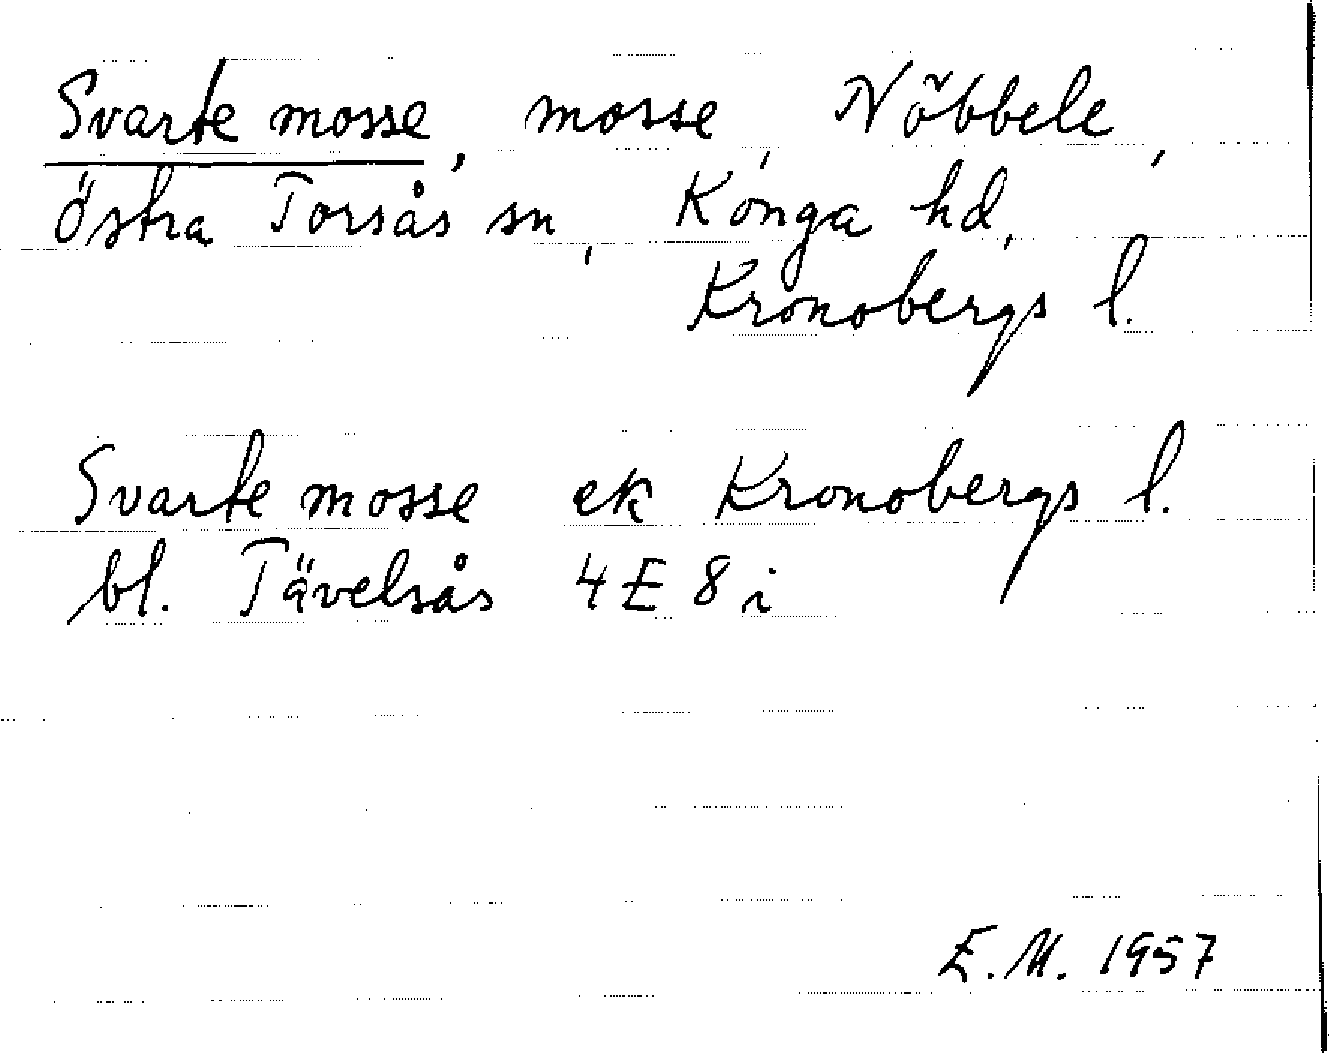 Svarte mosse, mosse, Nöbbele,
östra Torsås sn, Konga hd,
Kronobergs l.
Svarte mosse ek Kronobergs l.
bl. Tävelsås 4E 8i
E.M. 1957